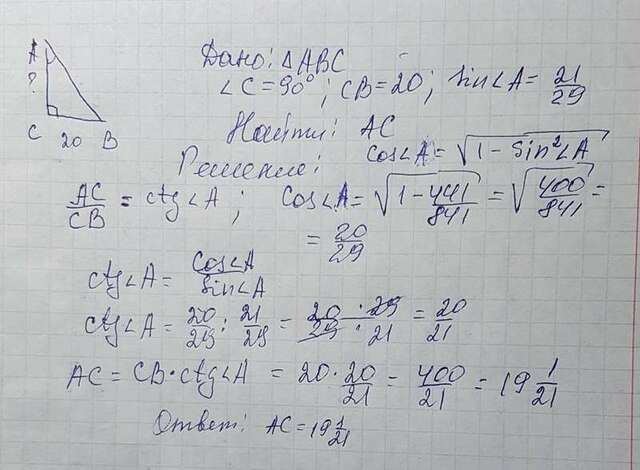 A
?
C 20 B
Дано: △ABC
∠C = 90°; CB = 20; sin∠A = 21/29
Найти: AC
Решение: cos∠A = √(1 - sin²∠A)
AC/CB = ctg∠A; cos∠A = √(1 - 441/841) = √(400/841) =
= 20/29
ctg∠A = cos∠A/sin∠A
ctg∠A = 20/29 : 21/29 = 20 · 29/29 · 21 = 20/21
AC = CB · ctg∠A = 20 · 20/21 = 400/21 = 19 1/21
Ответ: AC = 19 1/21